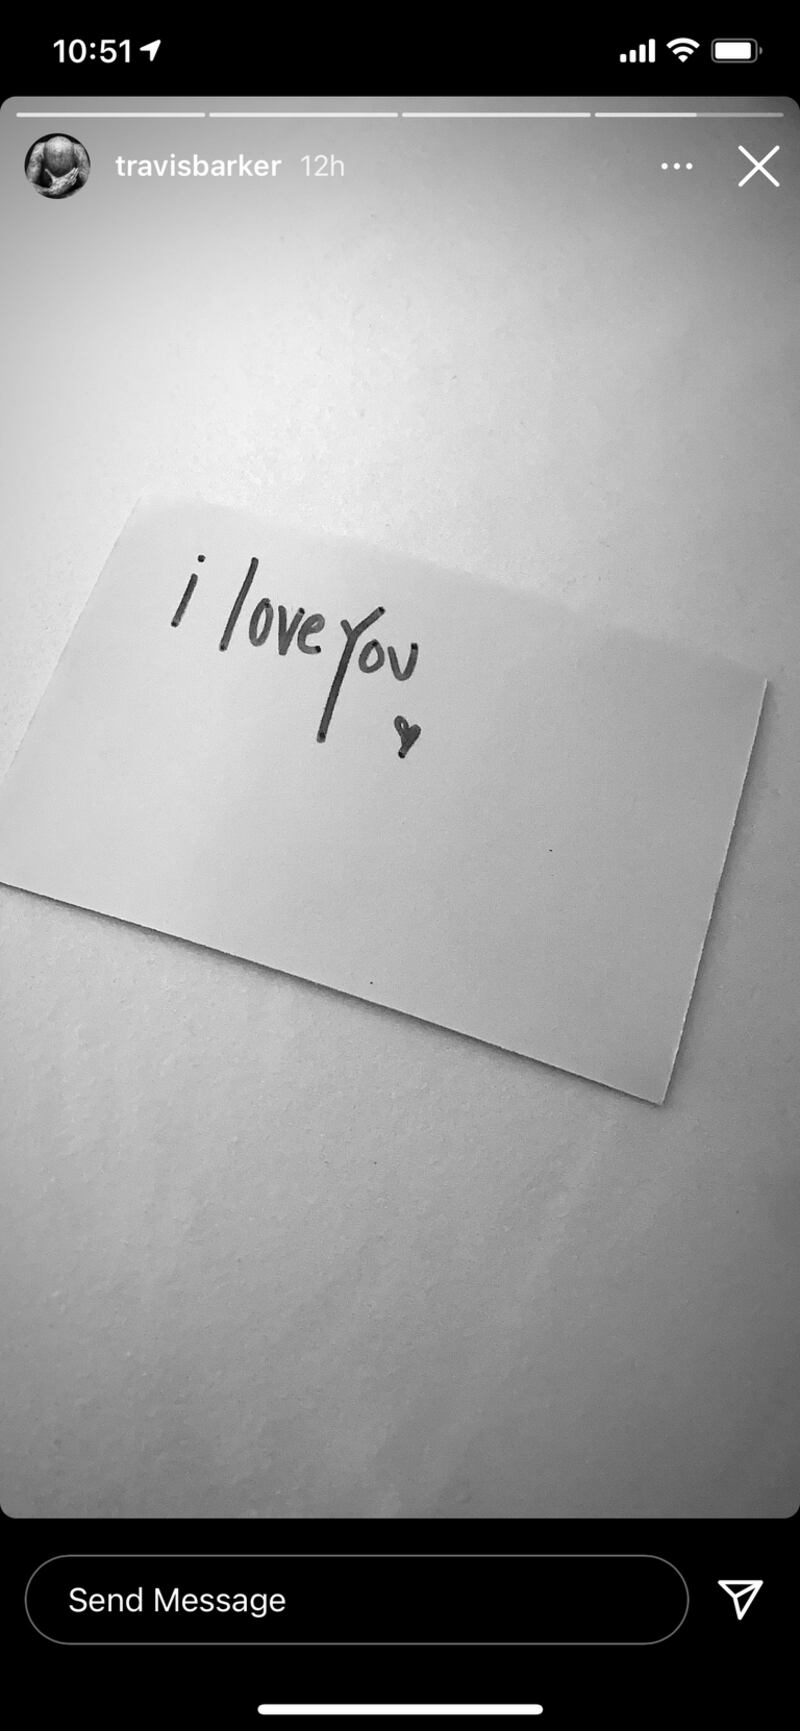 10:51
travisbarker 12h
i love You
Send Message